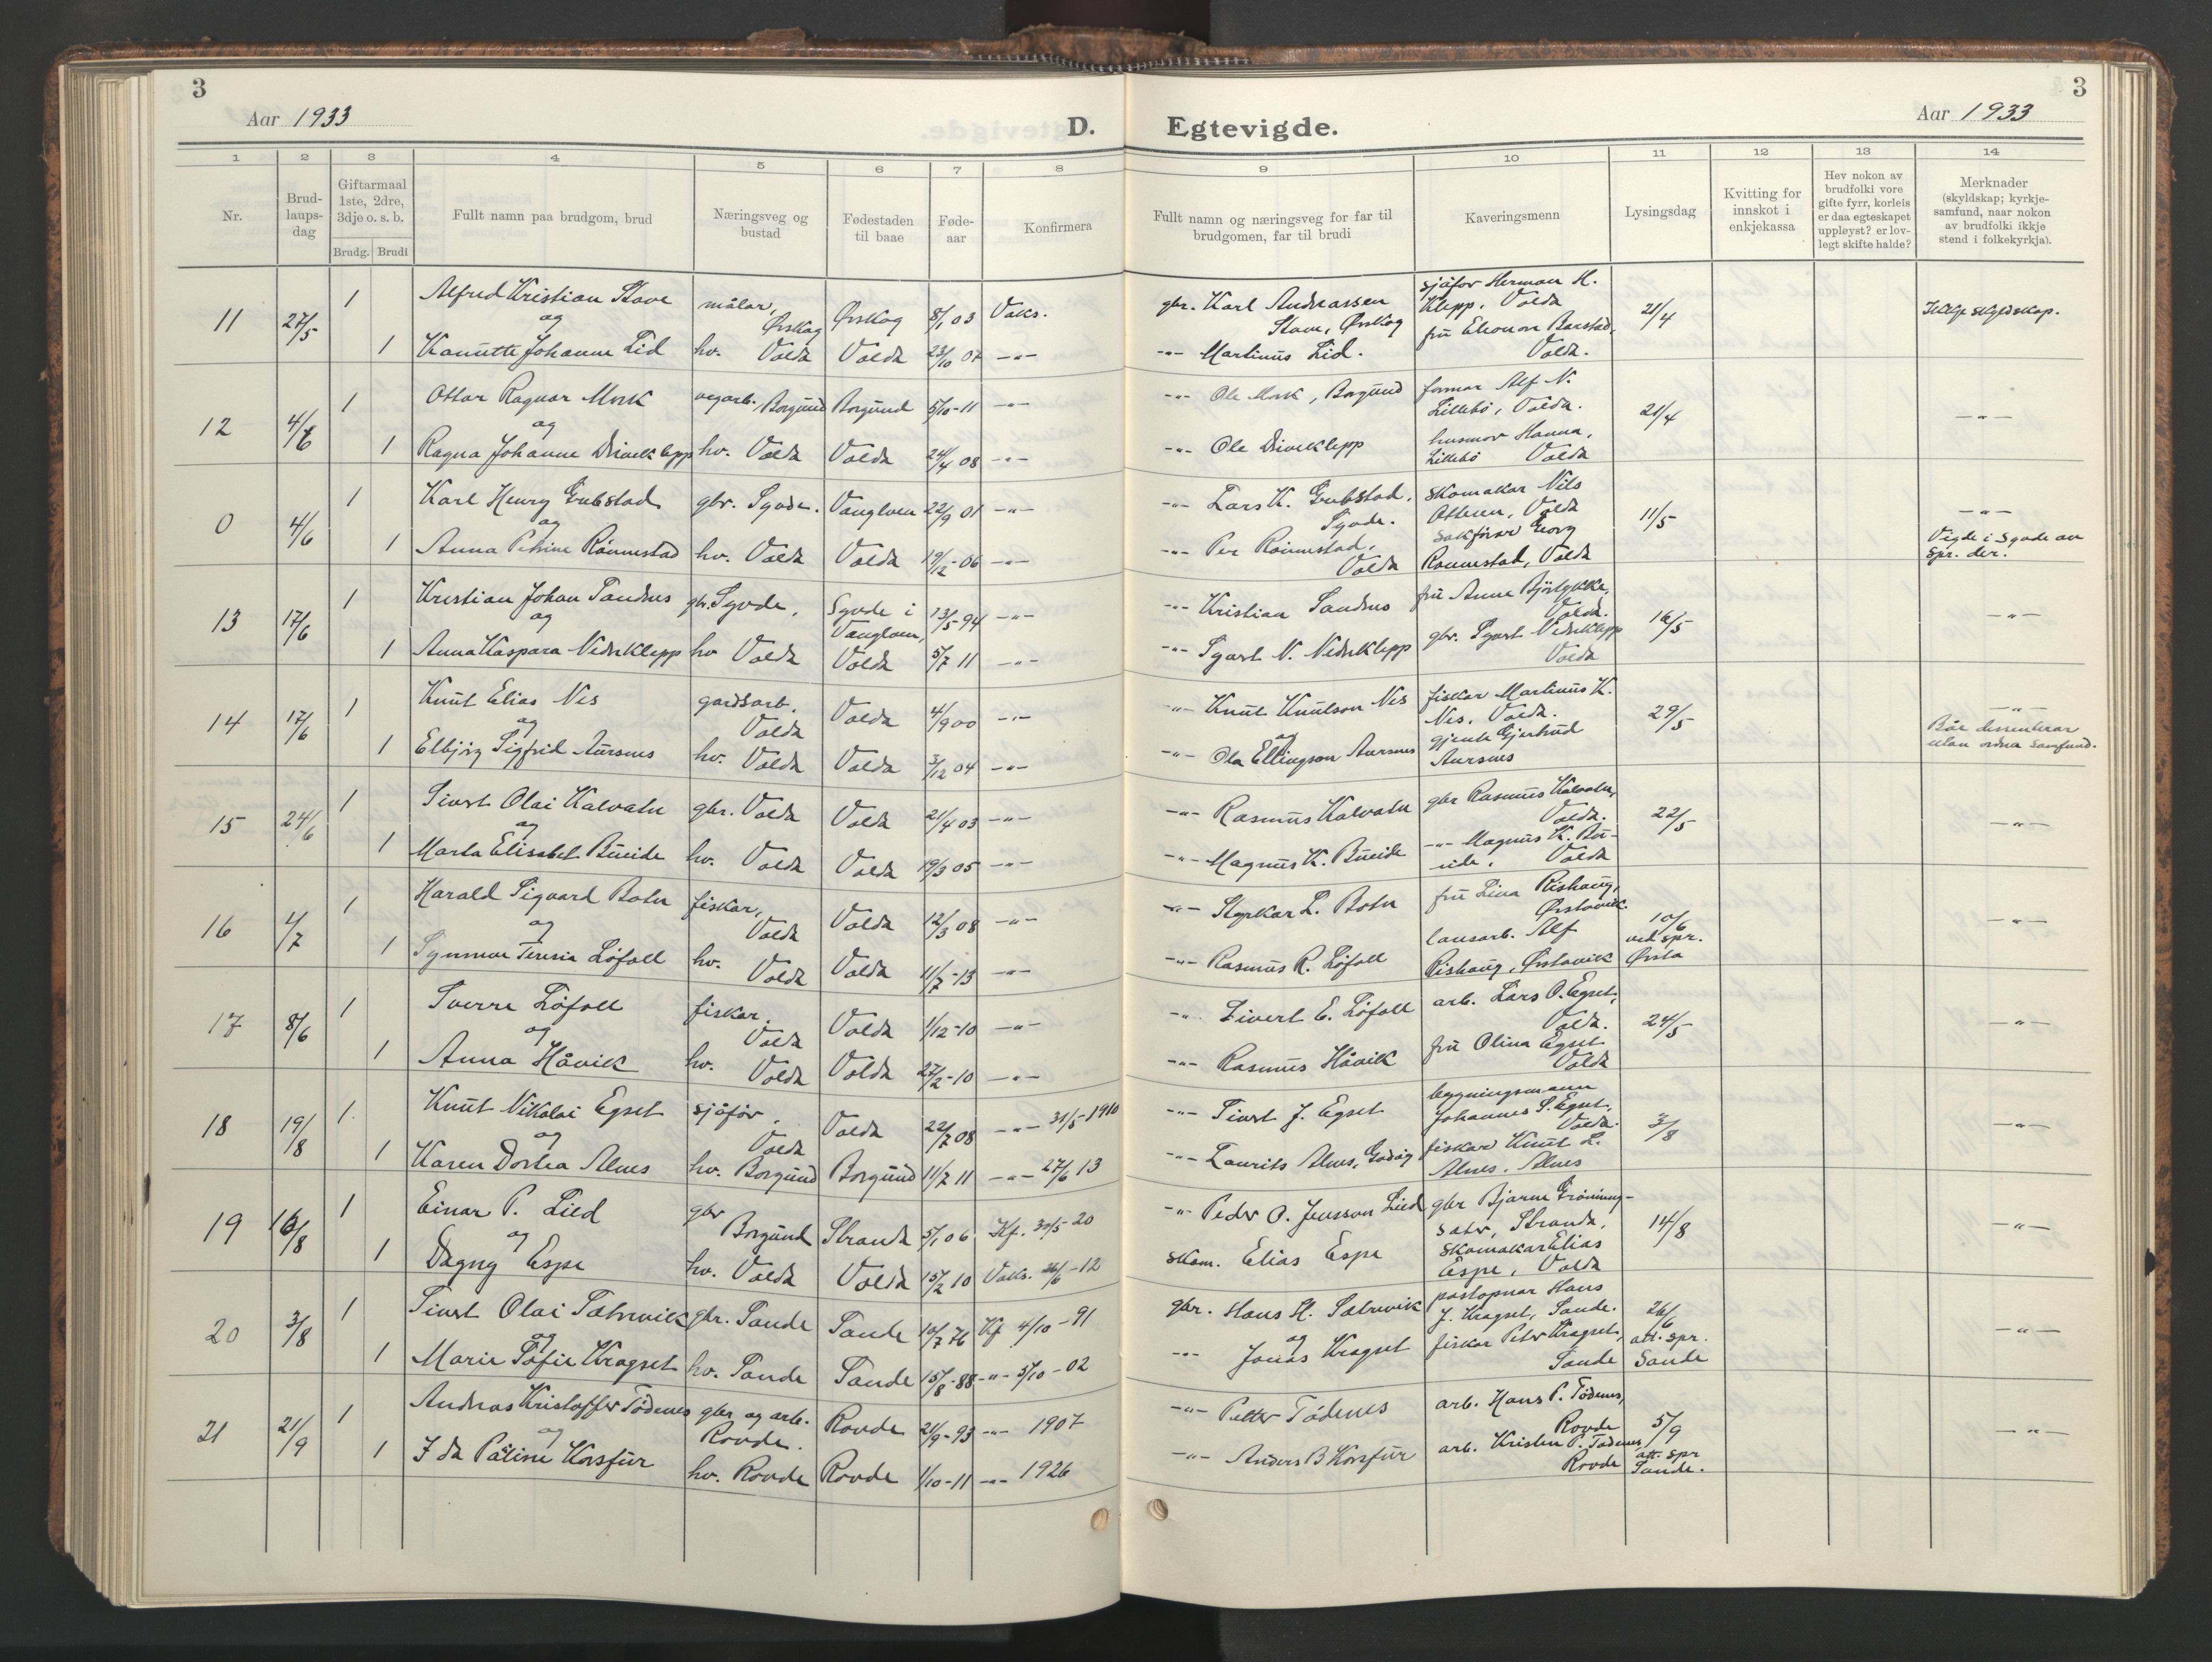 3
Aar 1933
D.
1 2 3 4 5 6 7 8
Nr.
Brud-
laups-
dag
Giftarmaal
1ste, 2dre,
3dje o. s. b.
Brudg. Brudi
Fullt namn paa brudgom, brud
Næringsveg og
bustad
Fødestaden
til baae
Føde-
aar
Konfirmera
11 27/5 1 Alfred Kristian Stave målar, Ørskog Ørskog 8/1 03 Vaks.
og
1 Kanutte Johanne Lid hv. Volda Volda 23/10 07 -"-
12 4/6 1 Ottar Ragnar Mork vegarb. Borgund Borgund 5/10-11 -"-
og
1 Ragna Johanne Driveklepp hv. Volda Volda 24/4 08 -"-
0 4/6 1 Karl Henry Grubstad gbr. Syvde. Vanylven 22/9 01 -"-
og
1 Anna Petrine Rönnestad hv. Volda Volda 19/12-06 -"-
13 17/6 1 Kristian Johan Sandnes gbr. Syvde, Syvde i Vanylven, 13/5-94 -"-
og
1 Anna Kaspara Nedreklepp hv Volda Volda 5/7 11 -"-
14 17/6 1 Knut Elias Nes gardsarb. Volda Volda 4/9 00 -"-
og
1 Elbjörg Sigfrid Aursnes hv. Volda Volda 3/12 04 -"-
15 24/6 1 Sivert Olai Kalvatn gbr. Volda Volda 21/4 03 -"-
og
1 Marta Elisabet Bueide hv. Volda Volda 19/3 05 -"-
16 4/7 1 Harald Sigvard Botn fiskar, Volda Volda 12/3 08 -"-
og
1 Synnøve Teresia Løfoll hv. Volda Volda 11/7-13 -"-
17 8/6 1 Sverre Løfoll fiskar. Volda Volda 1/12-10 -"-
og
1 Anna Håvik hv. Volda Volda 27/2-10 -"-
18 19/8 1. Knut Nikolai Egset sjåför. Volda Volda 22/7 08 -"- 31/5-1910
og
1 Karen Dortea Alnes hv. Borgund Borgund 11/7 11 -"- 27/6 13
19 16/8 1 Einar P. Lied gbr Borgund Stranda 5/1 06 Kf. 30/5 20
og
1 Dagny Espe hv. Volda Volda 15/2 10 Vaks. 26/6-12
20 3/8 1 Sivert Olai Sætrevik gbr. Sande Sande 10/7 76 Kf 4/10-91
og
1 Marie Sofie Kragset hv. Sande Sande 15/8-88 -"- 5/10-02
21 21/9 1 Andreas Kristoffer Tødenes gbr og arb. Rovde. Rovde 21/9-93 -"- 1907
og
1 Ida Paline Korsfur hv. Rovde Rovde 1/10-11 -"- 1926
3
Egtevigde.
Aar 1933
9 10 11 12 13 14
Fullt namn og næringsveg for far til
brudgomen, far til brudi
Kaveringsmenn
Lysingsdag
Kvitting for
innskot i
enkjekassa
Hev nokon av
brudfolki vore
gifte fyrr, korleis
er daa egteskapet
uppløyst? er lov-
legt skifte halde?
Merknader
(skyldskap; kyrkje-
samfund, naar nokon
av brudfolki ikkje
stend i folkekyrkja).
gbr. Karl Andreassen Stave, Ørskog
sjåför Herman H. Klepp, Volda
21/4
Ikkje skyldskap.
-"- Martinus Lid.
fru Eleonor Barstad, Volda.
-"- Ole Mork, Borgund
formar Alf N. Lillebö, Volda.
21/4
-"-
-"- Ole Driveklepp
husmor Hanna, Lillebö Volda
-"- Lars K. Grubstad. Syvde.
skomakar Nils Ottesen, Volda
11/5
-"-
Vigde i Syvde av
spr. der.
-"- Per Rönnestad, Volda
sakförar Georg Rönnestad, Volda
-"- Kristian Sandnes
fru Anne Björlykke, Volda.
16/5
-"-
-"- Syvert N. Nedreklepp
gbr. Syvert Nedreklepp Volda
-"- Knut Knutson Nes
fiskar Martinus K. Nes, Volda.
29/5
-"-
Båe dissenterar
utan ordna samfund.
og
-"- Ola Ellingson Aursnes
gjente Gjertrud Aursnes
-"- Rasmus Kalvatn
gbr Rasmus Kalvatn, Volda.
22/5
-"-
-"- Magnus K. Bueide
-"- Magnus K. Bu-
eide, Volda
-"- Styrkar L. Botn
fru Lina Rishaug, Ørstavik.
10/6
ved spr.
Ørsta
-"-
-"- Rasmus R. Løfoll
lausarb. Alf Rishaug, Ørstavik
-"- Sivert E. Løfoll
arb. Lars O. Egset, Volda.
24/5
-"-
-"- Rasmus Håvik
fru Olina Egset Volda
-"- Sivert J. Egset
bygningsmann Johannes S. Egset, Volda.
3/8
-"-
-"- Laurits Alnes, Godøy
fiskar Knut L. Alnes. Alnes
-"- Peder O. Jensson Lied
gbr Bjarne Gröning-
sæter, Stranda,
14/8
-"-
skom. Elias Espe
skomakar Elias Espe, Volda
gbr. Hans H. Sætrevik
postopnar Hans J. Kragset, Sande.
26/6
att. spr.
Sande
-"-
og
-"- Jonas Kragset
fiskar Peter Kragset, Sande
-"- Petter Tødenes
arb. Hans P. Tødenes, Rovde
5/9
att. spr
Sande.
-"-
-"- Anders B Korsfur
arb. Kristen P. Tødenes Rovde